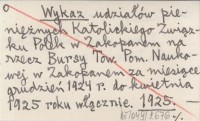 Wykaz udziałów pie-
niężnych Katolickiego Związ-
ku Polek w Zakopanem na
rzecz Bursy Tow. Pom. Nauko-
wej w Zakopanem za miesiące
grudzień 1924 r. do kwietnia
1925 roku włącznie. 1925.